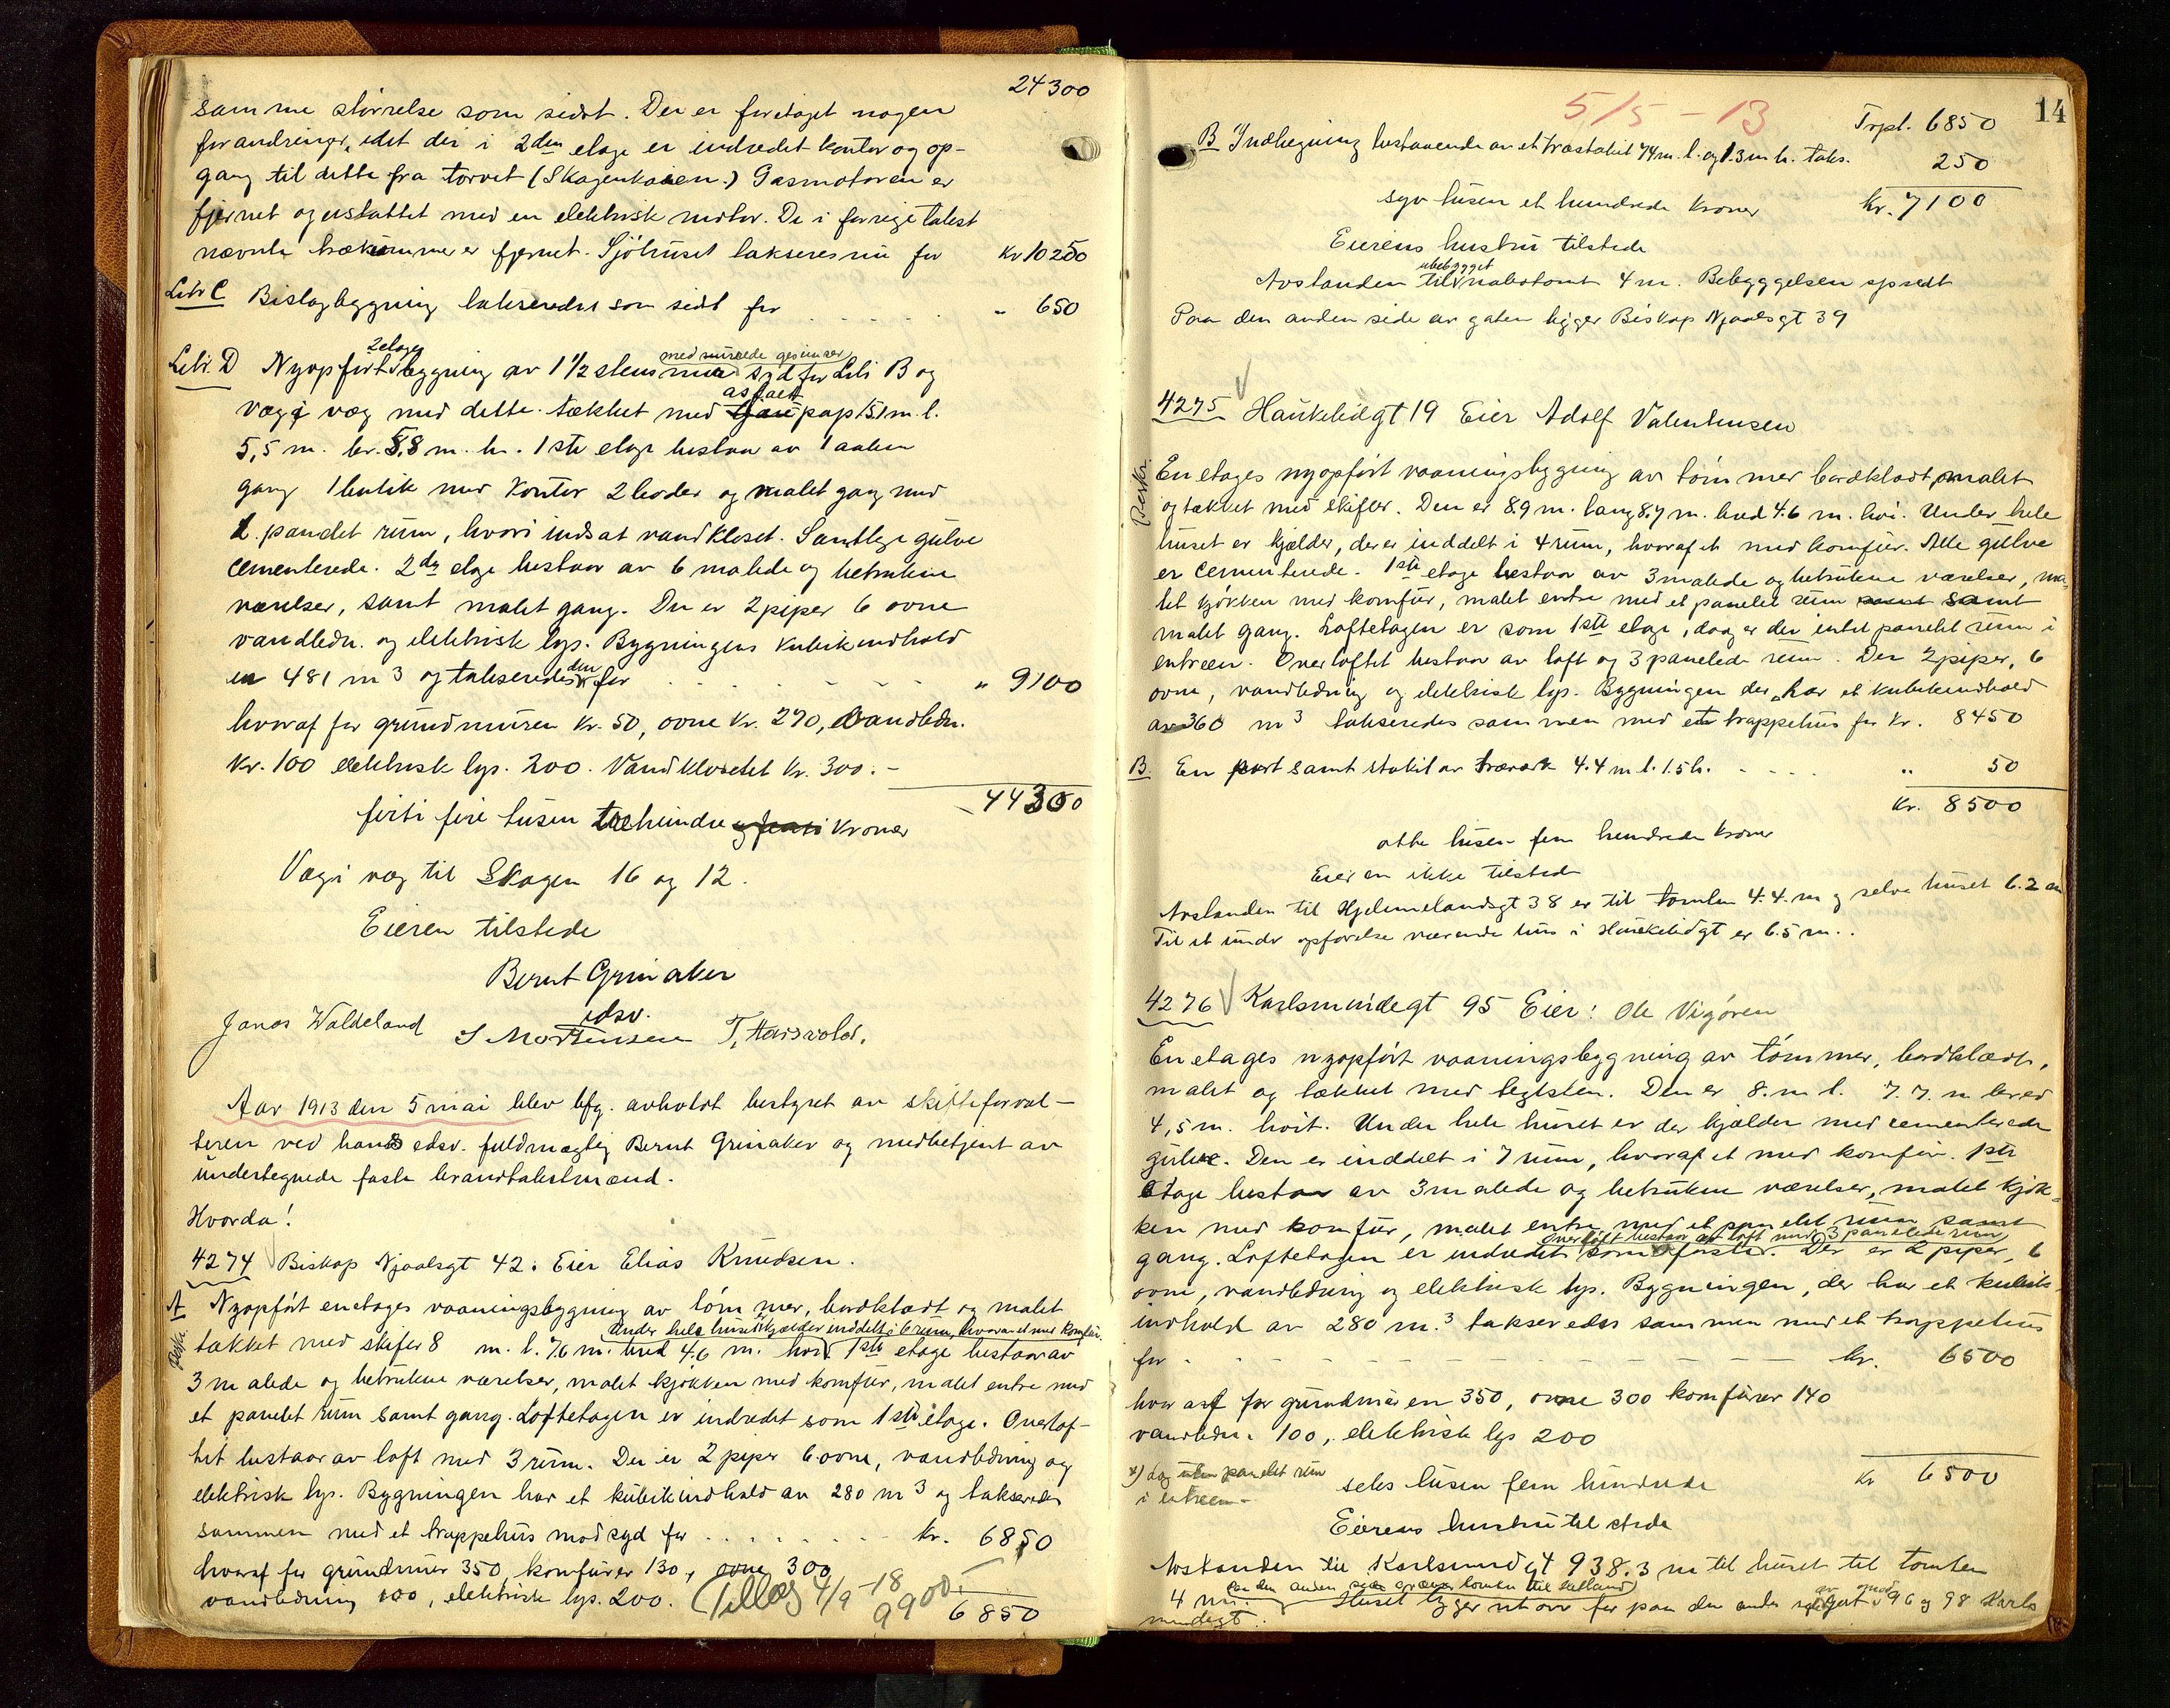 24300
samme størrelse som sidst. Der er foretaget nogen
forandringer, idet der i 2den etage er indredet kontor og op-
gang til dette fra torvet (Skagenkaien.) Gasmotoren er
fjernet og erstattet med en elektrisk motor. De i forrige takst
nævnte trækummer er fjernet. Sjöhuset takseres nu for kr 10250
Litr C Bislagbygning takseredes som sidst for " 650
2 etages
med murede gesimser
Litr. D Nyopført bygning av 1 1/2 stens mur syd for Litr B og
asfalt
væg i væg med dette. tækket med tjærepap 15,1 m. l.
5,5 m. br. 5,8 m. h. 1ste etage bestaar av 1 aaben
gang 1 butik med kontor 2 boder og malet gang med
1. panelet rum, hvori indsat vandkloset. Samtlige gulve
cementerede. 2den etage bestaar av 6 malede og betrukne
værelser, samt malet gang. Der er 2 piper 6 ovne
vandledn. og elektrisk lys. Bygningens kubikindhold
den
er 481 m3 og takseredes for " 9100
hvoraf for grundmuren Kr. 50, ovne Kr. 270, vandledn.
Kr. 100 elektrisk lys. 200. Vandklosetet Kr. 300. -
44300
firti fire tusen tre hundre og femti kroner
Væg i væg til Skagen 16 og 12.
Eieren tilstede
Bernt Grinaker
edsv.
Jonas Waldeland S Mortensen T, Hausvold.
Aar 1913 den 5 mai blev bfg. avholdt bestyret av skifteforval-
teren ved hans edsv. fuldmægtig Bernt Grinaker og medbetjent av
undertegnede faste brandtakstmænd.
Hvorda!
4274 Biskop Njaalsgt 42. Eier Elias Knudsen.
A Nyopført enetages vaaningsbygning av tömmer, bordklædt og malet
Under hele huset kjælder inddelt i 6 rum, hvorav et med komfür.
Beskr. tækket med skifer 8 m. l. 7.6 m. bred 4.6 m. høi. 1ste etage bestaar av
3 malede og betrukne værelser, malet kjøkken med komfür, malet entre med
et panelet rum samt gang. Loftetagen er indredet som 1ste etage. Overlof-
tet bestaar av loft med 3 rum. Der er 2 piper 6 ovne, vandledning og
elektrisk lys. Bygningen har et kubikindhold av 280 m3 og takseredes
sammen med et trappehus mod syd for kr. 6850
hvoraf for grundmur 350, komfürer 130, ovne 300
vandledning 100, elektrisk lys. 200. (Tillæg 4/9-18 9900.- 6850
5/5 - 13
14
Trpt. 6850
B Indhegning bestaaende av et træstakit 74 m. l. og 1.3 m h. taks. 250
syv tusen et hundrede kroner kr. 7100
Eierens hustru tilstede
ubebygget
Avstanden til nabotomt 4 m. Bebyggelsen spredt
Paa den anden side av gaten ligger Biskop Njaalsgt 39
4275 Haukelidgt 19 Eier Adolf Valentinsen
Beskr. En etages nyopført vaaningsbygning av tömmer bordklædt, malet
og tækket med skifer. Den er 8.9 m. lang 8.7 m. bred 4.6 m. høi. Under hele
huset er kjælder, der er inddelt i 4 rum, hvoraf et med komfur. Alle gulve
er cementerede. 1ste etage bestaar av 3 malede og betrukne værelser, ma-
let kjøkken med komfür, malet entre med et panelet rum samt samt
malet gang. Loftetagen er som 1ste etage, dog er der intet panelet rum i
entreen. Overloftet bestaar av loft og 3 panelede rum. Der 2 piper, 6
ovne, vandledning og elektrisk lys. Bygningen der har et kubikindhold
av 360 m3 takseredes sammen med et trappehus for kr. 8450
B. En port samt stakit av træverk 4.4 m l. 1.5 h. " 50
kr. 8500
otte tusen fem hundrede kroner
Eieren ikke tilstede
Avstanden til Hjelmelandsgt 38 er til tomten 4.4. m og selve huset 6.2 m
Til et under opførelse værende hus i Haukelidgt er 6.5 m..
4276 Karlsmindegt 95 Eier: Ole Vigören
En etages nyopført vaaningsbygning av tömmer, bordklædt,
malet og tækket med teglsten. Den er 8. m l. 7.7. m bred
4,5 m. høit. Under hele huset er der kjælder med cementerede
gulve. Den er inddelt i 7 rum, hvoraf et med komfür. 1ste
etage bestaar av 3 malede og betrukne værelser, malet kjøk-
ken med komfür, malet entre med et panelet rum samt
Overloft bestaar av loft med 3 panelede rum
gang. Loftetagen er indredet som første. Der er 2 piper, 6
ovne, vandledning og elektrisk lys. Bygningen, der har et kubik-
indhold av 280 m.3 takseredes sammen med et trappehus
for kr. 6500
hvoraf for grundmuren 350, ovne 300 komfürer 140
vandledn. 100, elektrisk lys 200
x) dog uten panelet rum
i entreen - seks tusen fem hundrede kr 6500
Eierens hustru tilstede
Avstanden til Karlsmindegt 93 8.3 m til huset til tomten
4 m. Paa den anden side græver tomten til
Huset ligger ret over for paa den anden side av gaten med 96 og 98 Karls
mindegt.